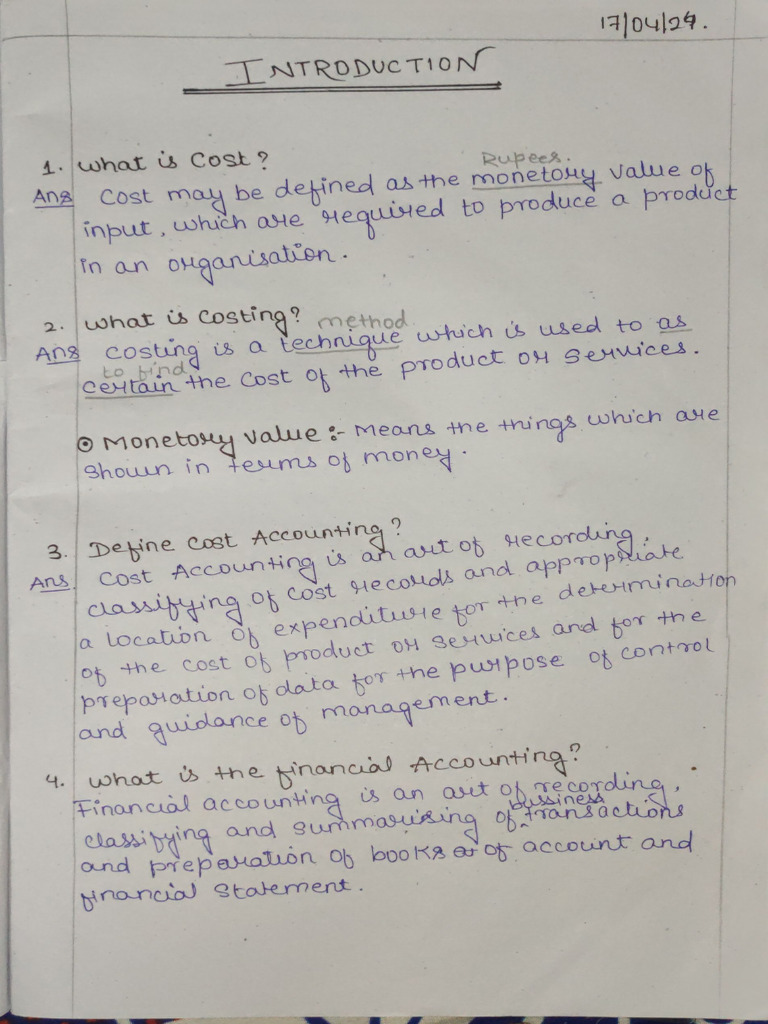 17/04/24.
INTRODUCTION
1. What is Cost?
Rupees.
Ans Cost may be defined as the monetory value of
input, which are required to produce a product
in an organisation.
2. What is Costing?
method
Ans Costing is a technique which is used to as
to find
certain the cost of the product or services.
⊙ Monetory value :- Means the things which are
shown in terms of money.
3. Define Cost Accounting?
Ans Cost Accounting is an art of recording,
classifying of cost records and appropriate
a location of expenditure for the determination
of the cost of product or services and for the
preparation of data for the purpose of control
and guidance of management.
4. What is the financial Accounting?
Financial accounting is an art of recording,
bussiness
classifying and summarising of transactions
and preparation of books of account and
financial statement.